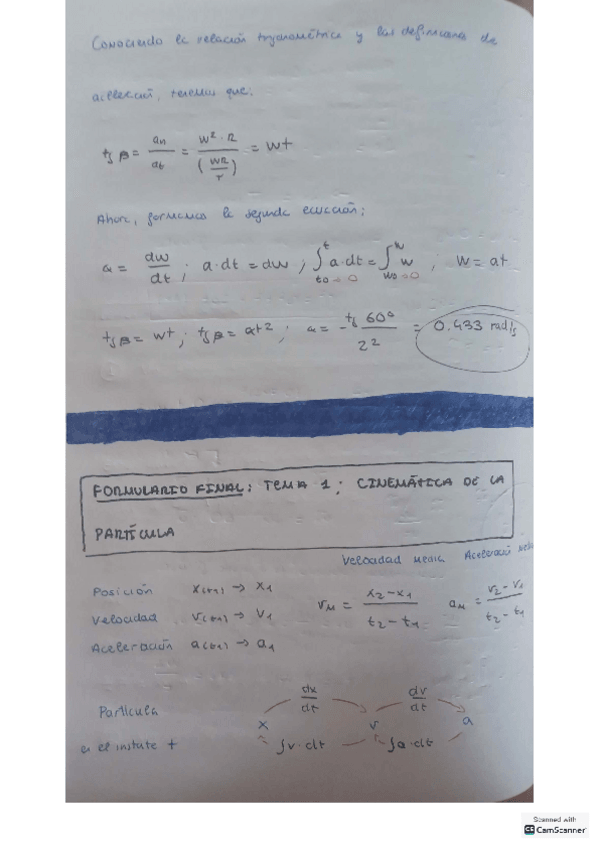 Conociendo la relación trigonométrica y las definiciones de
aceleración, tenemos que:
tg β = an/at = w²·R/(wR/t) = wt
Ahora, formamos la segunda ecuación:
α = dw/dt ; α·dt = dw ; ∫t t0=0 α·dt = ∫w w0=0 w ; w = αt
tg β = wt ; tg β = αt2 ; α = tg 60°/2² = 0.433 rad/s
FORMULARIO FINAL: TEMA 1: CINEMÁTICA DE LA
PARTÍCULA
Velocidad Media Aceleració
Posición x(t1) → x1 vM = x2-x1/t2-t1 aM = v2-v1/t2-t1
Velocidad v(t1) → v1
Aceleración a(t1) → a1
dx/dt dv/dt
Partícula x v a
en el instate t ∫v·dt ∫a·dt
Scanned with
CS CamScanner